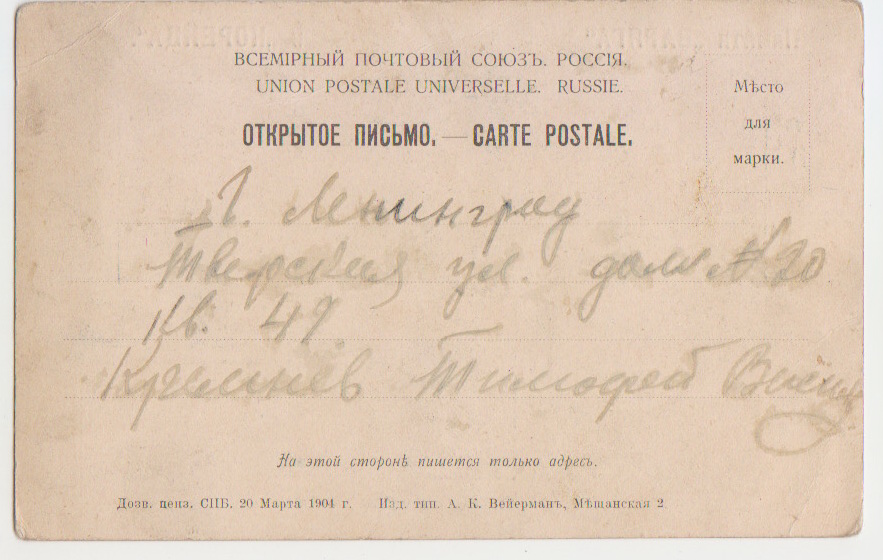 ВСЕМІРНЫЙ ПОЧТОВЫЙ СОЮЗЪ. РОССІЯ.
UNION POSTALE UNIVERSELLE. RUSSIE.
ОТКРЫТОЕ ПИСЬМО. — CARTE POSTALE.
Мѣсто
для
марки.
Г. Ленинград
Тверская ул. дом № 20
кв. 49
Тимофей
На этой сторонѣ пишется только адресъ.
Дозв. ценз. СПБ. 20 Марта 1904 г. Изд. тип. А. К. Вейерманъ, Мѣщанская 2